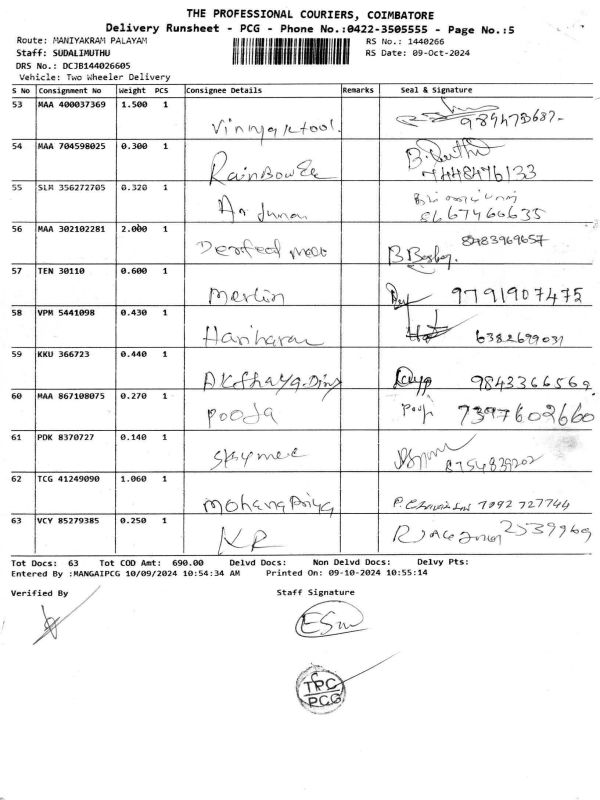 THE PROFESSIONAL COURIERS, COIMBATORE
Delivery Runsheet - PCG - Phone No.:0422-3505555 - Page No.:5
Route: MANIYAKRAM PALAYAM
RS No.: 1440266
Staff: SUDALIMUTHU
RS Date: 09-Oct-2024
DRS No.: DCJB144026605
Vehicle: Two Wheeler Delivery
S No Consignment No Weight PCS Consignee Details Remarks Seal & Signature
53 MAA 400037369 1.500 1
54 MAA 704598025 0.300 1
RainBow
7448476133
55 SLM 356272705 0.320 1
8667466635
56 MAA 302102281 2.000 1
8483969657
57 TEN 30110 0.600 1
Merlin 9791907475
58 VPM 5441098 0.430 1
Hariharan 6382699031
59 KKU 366723 0.440 1
9843366569
60 MAA 867108075 0.270 1
Pooja 7397602660
61 PDK 8370727 0.140 1
8754839202
62 TCG 41249090 1.060 1
Mohana Priya 7092 727744
63 VCY 85279385 0.250 1
KR 2539969
Tot Docs: 63 Tot COD Amt: 690.00 Delvd Docs: Non Delvd Docs: Delvy Pts:
Entered By :MANGAIPCG 10/09/2024 10:54:34 AM Printed On: 09-10-2024 10:55:14
Verified By Staff Signature
TPC
PCG